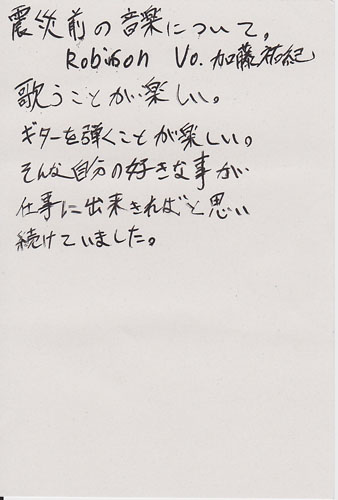 震災前の音楽について。
Robinson Vo. 加藤祐紀
歌うことが楽しい。
ギターを弾くことが楽しい。
そんな自分の好きな事が
仕事に出来きればと思い
続けていました。